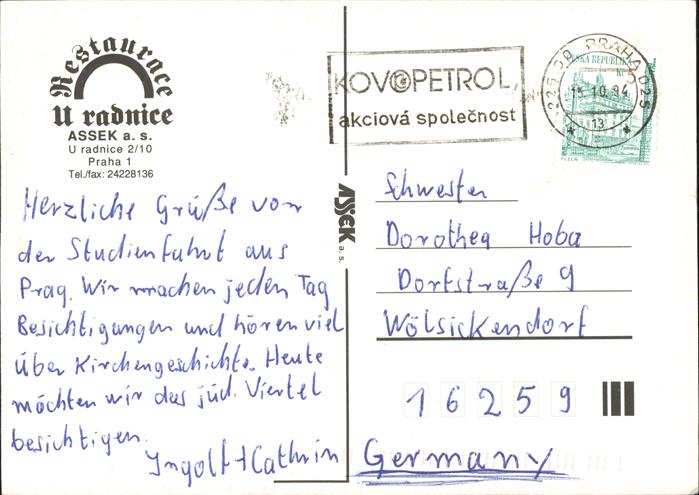 Restaurace
U radnice
ASSEK a. s.
U radnice 2/10
Praha 1
Tel./fax: 24228136
KOVOPETROL
akciová společnost
PRAHA 025
ČESKÁ REPUBLIKA
Kč 5
15.10.94
13
PLZEŇ
ASSEK a. s.
Herzliche Grüße von
der Studienfahrt aus
Prag. Wir machen jeden Tag
Besichtigungen und hören viel
über Kirchengeschichte. Heute
möchten wir das jüd. Viertel
besichtigen.
Ingolf + Cathrin
Schwester
Dorothea Hoba
Dorfstraße 9
Wölsickendorf
16259
Germany